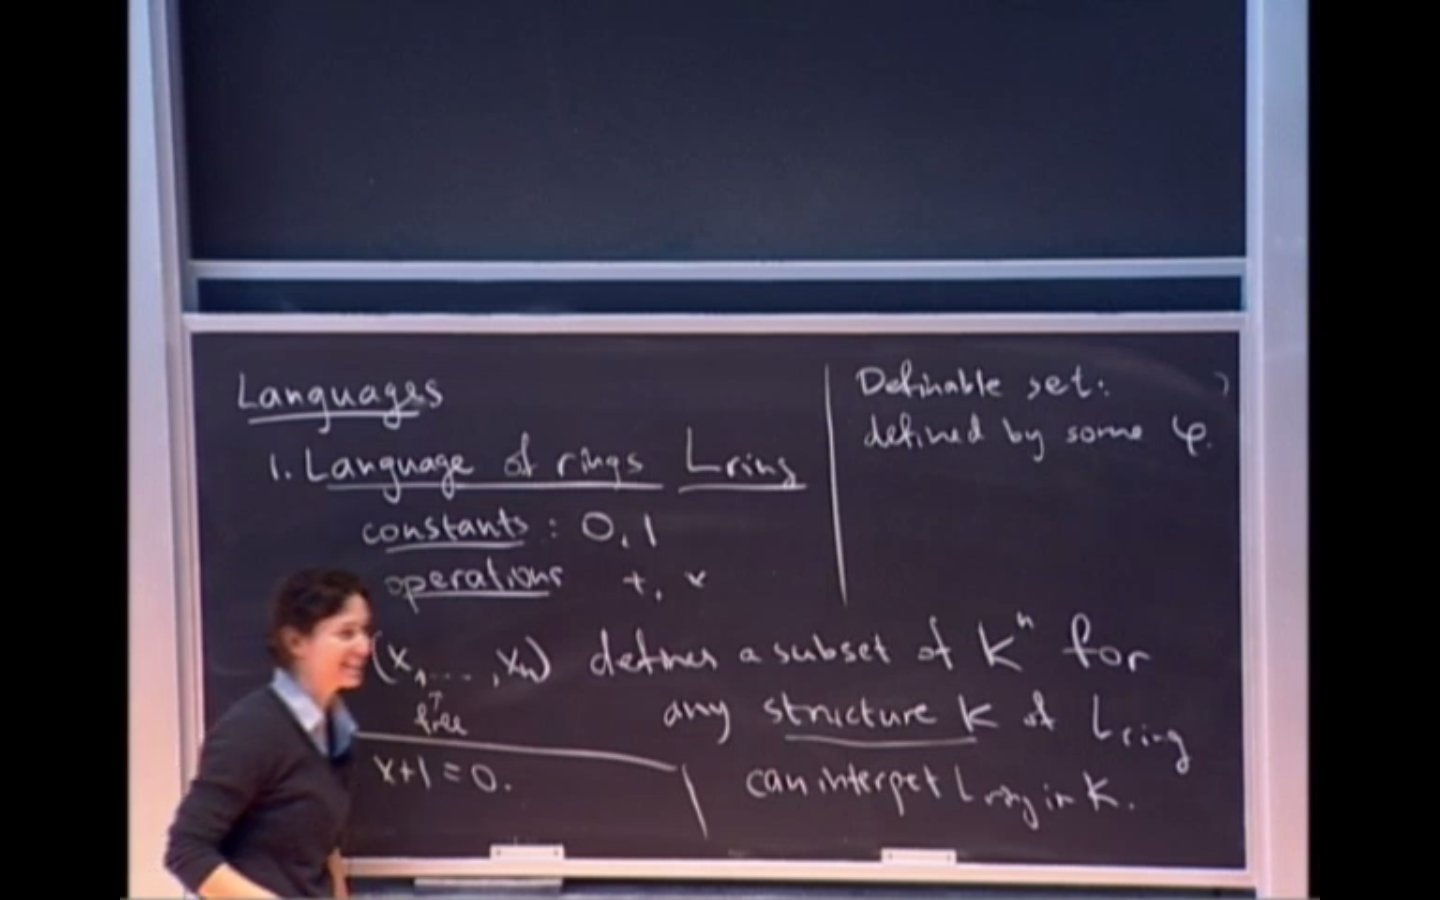 Languages
1. Language of rings Lring
constants : 0, 1
operations +, ×
(x1, ..., xn) defines a subset of K^n for
↑
free
any structure K of Lring
x+1=0.
can interpet Lring in K.
Definable set:
defined by some φ.